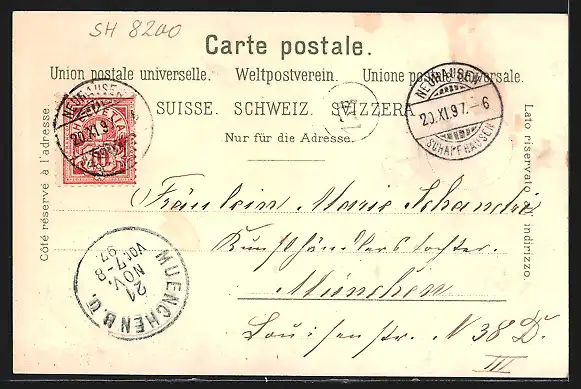 SH 8200
Carte postale.
Union postale universelle. Weltpostverein. Unione postale universale.
SUISSE. SCHWEIZ. SVIZZERA
Nur für die Adresse.
Côté réservé à l'adresse.
Lato riservato all'indirizzo.
NEUHAUSEN
20.XI.97
10
NEUHAUSEN
20.XI.97.-6
SCHAFFHAUSEN
Fräulein Marie Schandri
Kunsthändlerstochter.
München
Louisenstr. N 38 D.
III
MUENCHEN B.U.
21
NOV.
VOR 7-8
97.